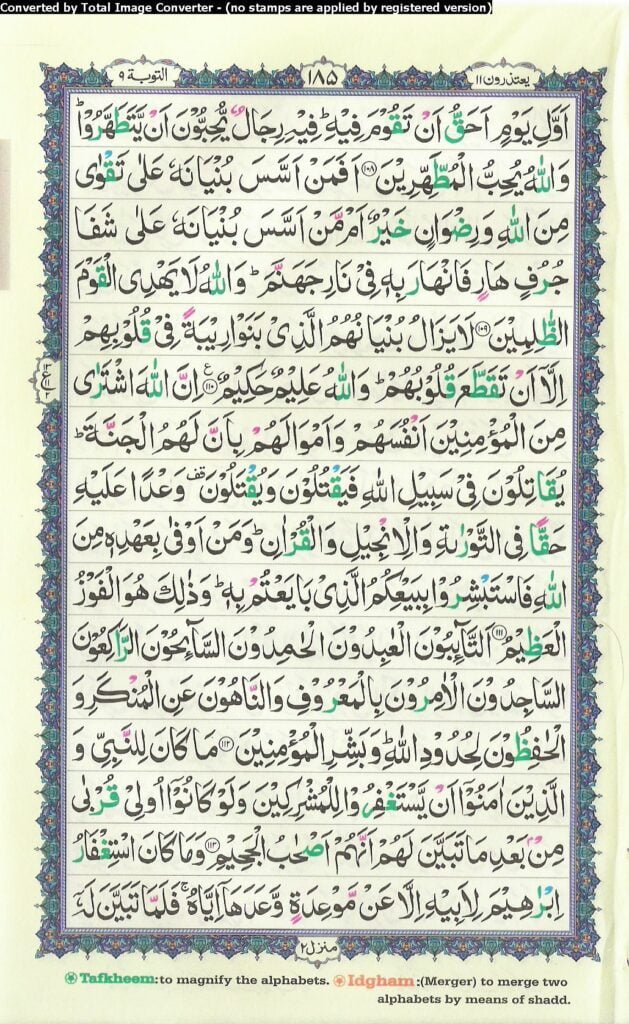 Converted by Total Image Converter - (no stamps are applied by registered version)
يعتذرون ۱۱
۱۸۵
التوبة ۹
اَوَّلِ يَوْمٍ اَحَقُّ اَنْ تَقُوْمَ فِيْهِ ؕ فِيْهِ رِجَالٌ يُّحِبُّوْنَ اَنْ يَّتَطَهَّرُوْا ؕ
وَاللّٰهُ يُحِبُّ الْمُطَّهِّرِيْنَ ﴿۱۰۸﴾ اَفَمَنْ اَسَّسَ بُنْيَانَهٗ عَلٰى تَقْوٰى
مِنَ اللّٰهِ وَرِضْوَانٍ خَيْرٌ اَمْ مَّنْ اَسَّسَ بُنْيَانَهٗ عَلٰى شَفَا
جُرُفٍ هَارٍ فَانْهَارَ بِهٖ فِىْ نَارِ جَهَنَّمَ ؕ وَاللّٰهُ لَا يَهْدِى الْقَوْمَ
الظّٰلِمِيْنَ ﴿۱۰۹﴾ لَا يَزَالُ بُنْيَانُهُمُ الَّذِىْ بَنَوْا رِيْبَةً فِىْ قُلُوْبِهِمْ
اِلَّاۤ اَنْ تَقَطَّعَ قُلُوْبُهُمْ ؕ وَاللّٰهُ عَلِيْمٌ حَكِيْمٌ ﴿۱۱۰﴾ ع اِنَّ اللّٰهَ اشْتَرٰى
مِنَ الْمُؤْمِنِيْنَ اَنْفُسَهُمْ وَاَمْوَالَهُمْ بِاَنَّ لَهُمُ الْجَنَّةَ ؕ
يُقَاتِلُوْنَ فِىْ سَبِيْلِ اللّٰهِ فَيَقْتُلُوْنَ وَيُقْتَلُوْنَ قف وَعْدًا عَلَيْهِ
حَقًّا فِى التَّوْرٰىةِ وَالْاِنْجِيْلِ وَالْقُرْاٰنِ ؕ وَمَنْ اَوْفٰى بِعَهْدِهٖ مِنَ
اللّٰهِ فَاسْتَبْشِرُوْا بِبَيْعِكُمُ الَّذِىْ بَايَعْتُمْ بِهٖ ؕ وَذٰلِكَ هُوَ الْفَوْزُ
الْعَظِيْمُ ﴿۱۱۱﴾ اَلتَّآئِبُوْنَ الْعٰبِدُوْنَ الْحٰمِدُوْنَ السَّآئِحُوْنَ الرّٰكِعُوْنَ
السّٰجِدُوْنَ الْاٰمِرُوْنَ بِالْمَعْرُوْفِ وَالنَّاهُوْنَ عَنِ الْمُنْكَرِ وَ
الْحٰفِظُوْنَ لِحُدُوْدِ اللّٰهِ ؕ وَبَشِّرِ الْمُؤْمِنِيْنَ ﴿۱۱۲﴾ مَا كَانَ لِلنَّبِىِّ وَ
الَّذِيْنَ اٰمَنُوْۤا اَنْ يَّسْتَغْفِرُوْا لِلْمُشْرِكِيْنَ وَلَوْ كَانُوْۤا اُولِىْ قُرْبٰى
مِنْۢ بَعْدِ مَا تَبَيَّنَ لَهُمْ اَنَّهُمْ اَصْحٰبُ الْجَحِيْمِ ﴿۱۱۳﴾ وَمَا كَانَ اسْتِغْفَارُ
اِبْرٰهِيْمَ لِاَبِيْهِ اِلَّا عَنْ مَّوْعِدَةٍ وَّعَدَهَاۤ اِيَّاهُ ۚ فَلَمَّا تَبَيَّنَ لَهٗۤ
منزل ۲
Tafkheem:to magnify the alphabets. Idgham:(Merger) to merge two
alphabets by means of shadd.